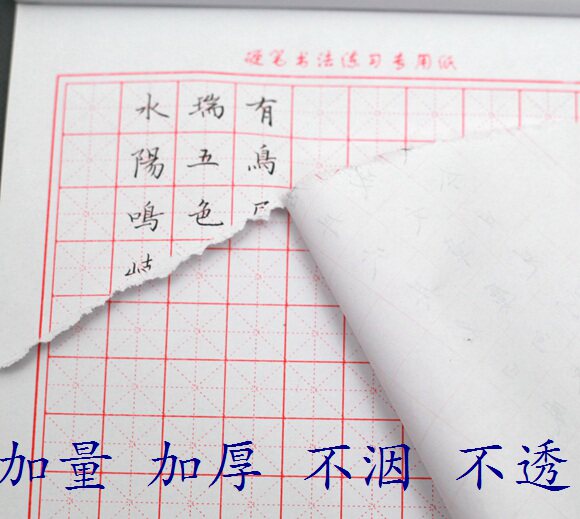 硬笔书法练习专用纸
有鳥
瑞五色
水陽鳴岐
加量 加厚 不洇 不透